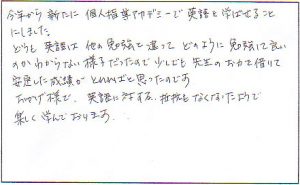 今年から新たに個人指導アカデミーで英語を学ばせること
にしました。
どうも英語は他の勉強と違ってどのように勉強して良い
のかわからない様子だったので少しでも先生のお力を借りて
安定した成績がとれればと思ったのです
おかげ様で、英語に対する抵抗もなくなったようで
楽しく学んでおります。